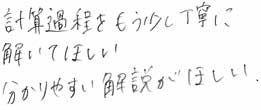 計算過程をもう少し丁寧に
解いてほしい
分かりやすい解説がほしい.